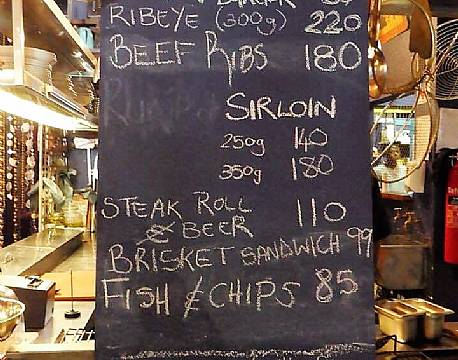 RIBEYE (300g) 220
BEEF RIBS 180
RUMP & SIRLOIN
250g 140
350g 180
STEAK ROLL 110
& BEER
BRISKET SANDWICH 99
FISH & CHIPS 85